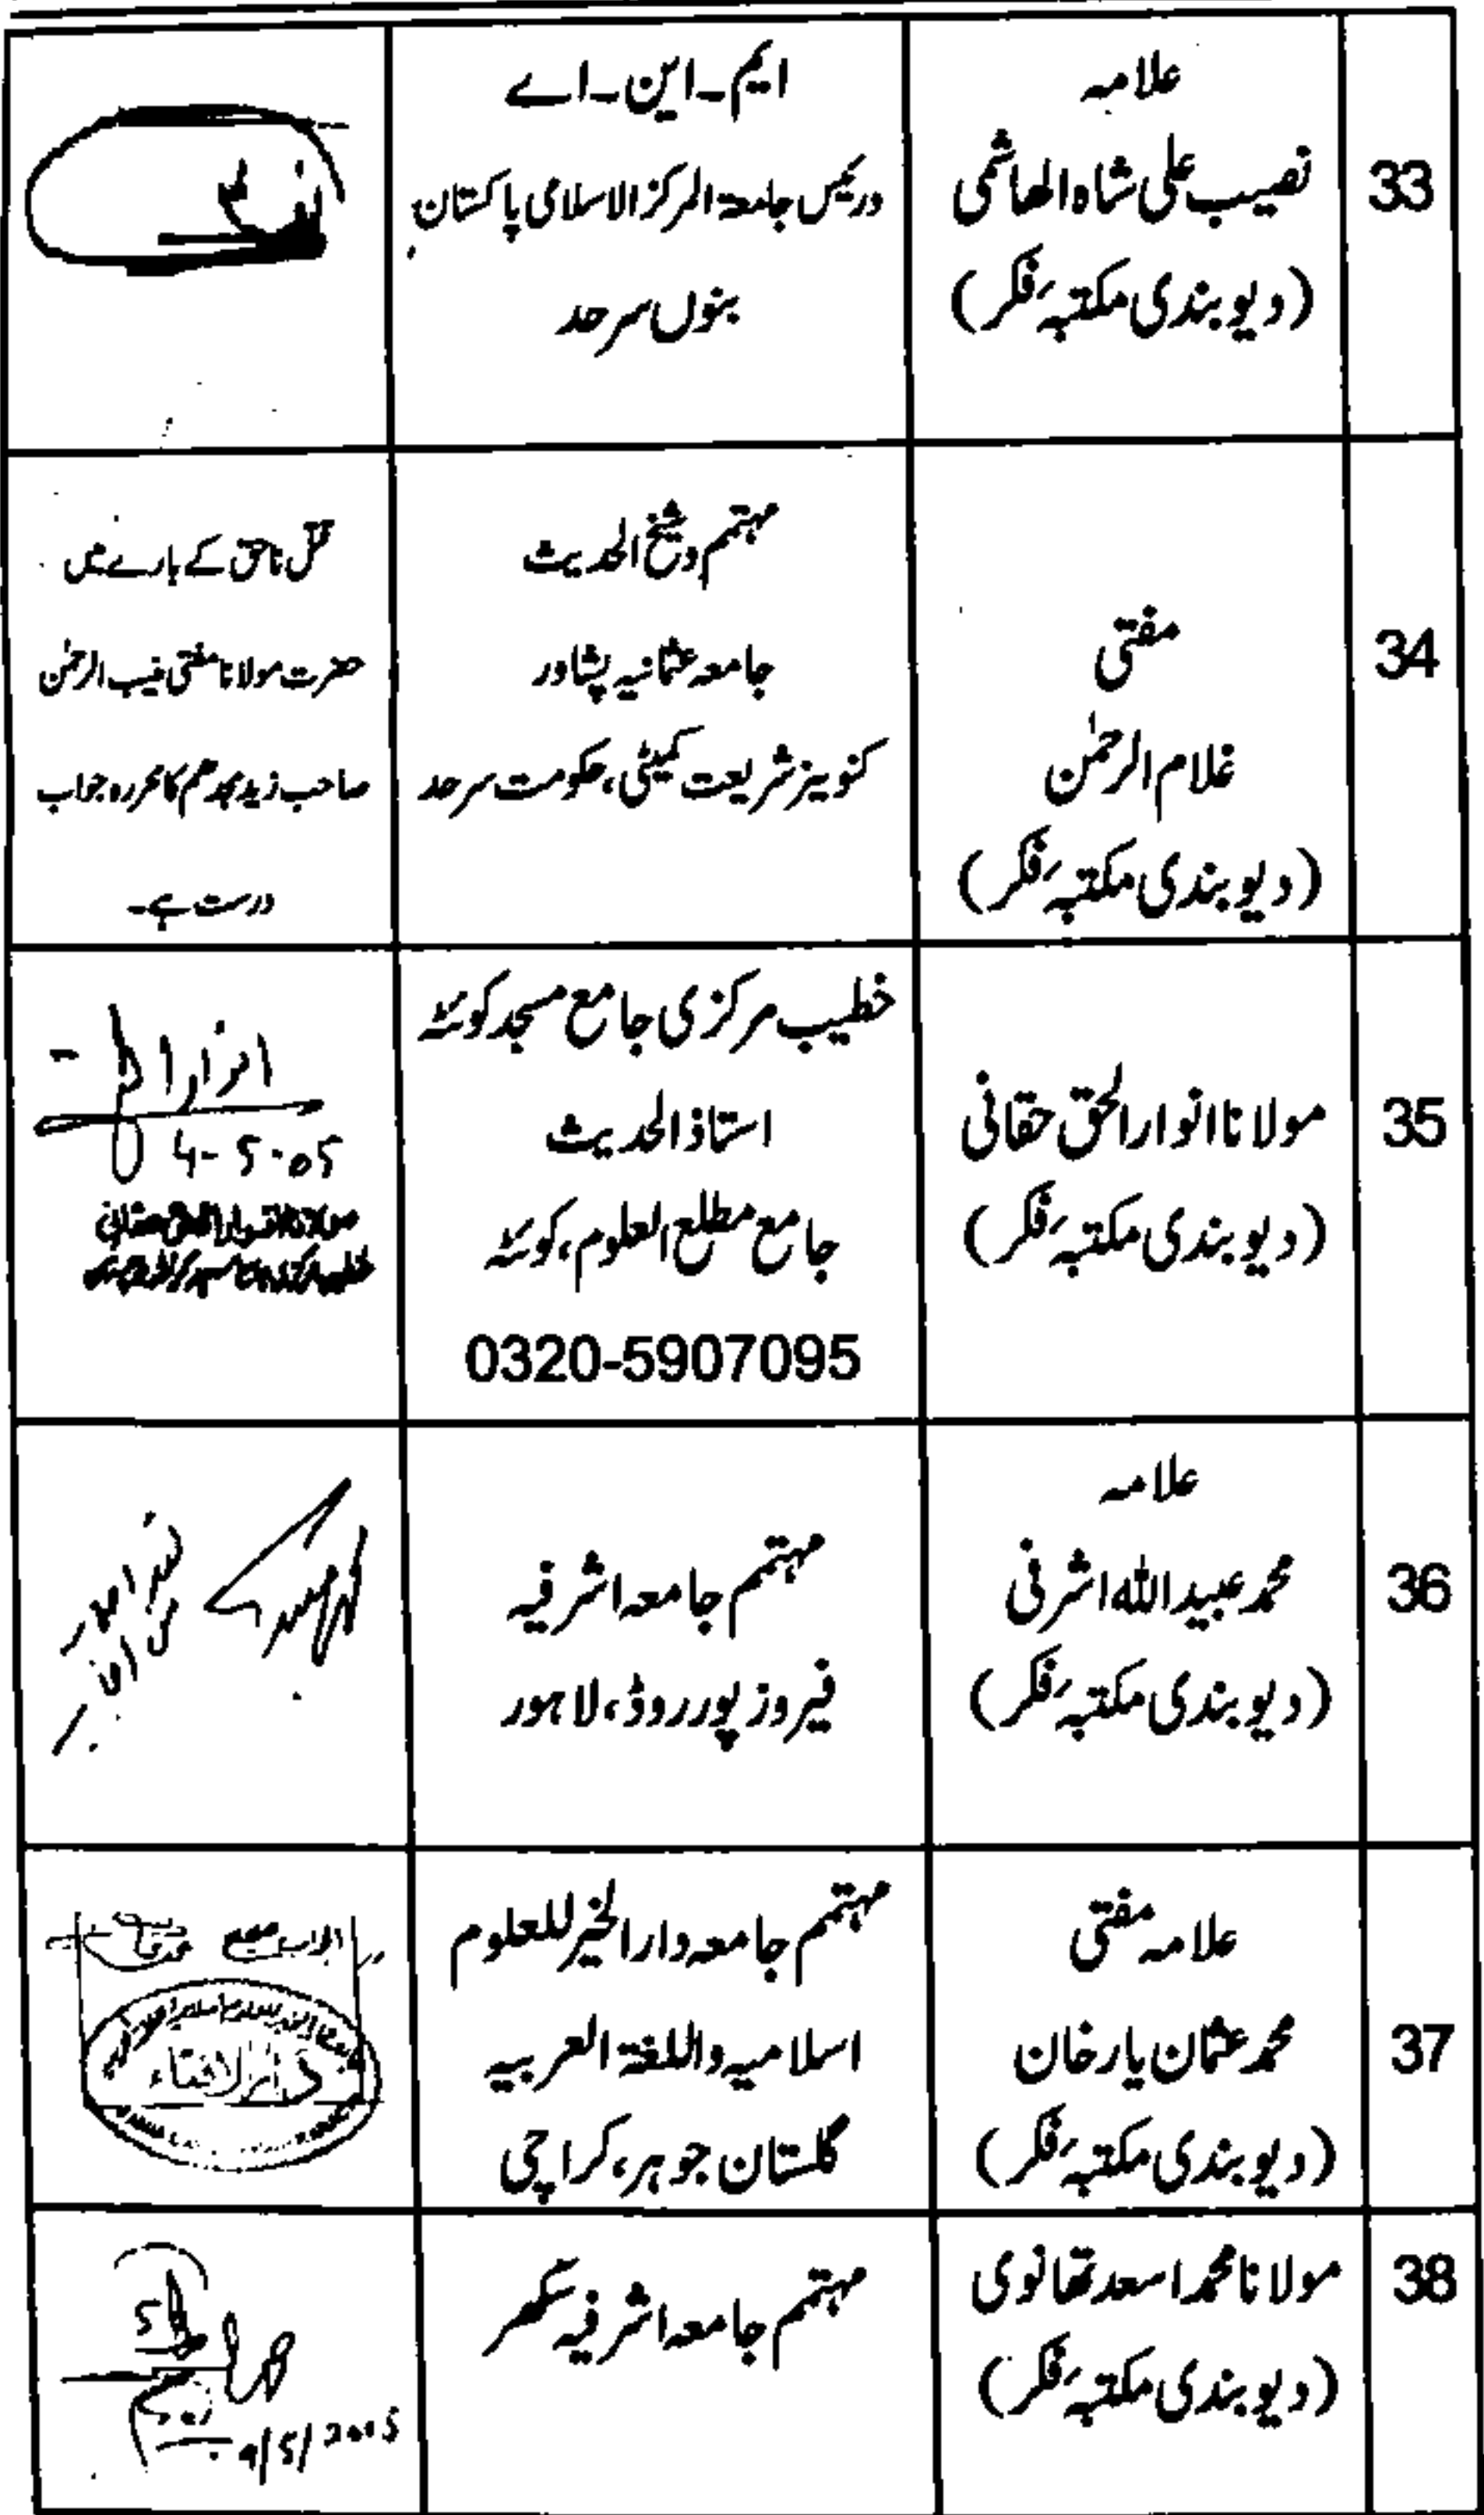 33
علامہ
نصیب علی شاہ الھاشمی
(دیوبندی مکتبہ ٔفکر)
ایم۔این۔اے
ورئیس جامعۃ المرکز الاسلامی پاکستان
بنوں سرحد
34
مفتی
غلام الرحمٰن
(دیوبندی مکتبہ ٔفکر)
مہتمم وشیخ الحدیث
جامعہ عثمانیہ پشاور
کنوینر شریعت کمیٹی، حکومت سرحد
قتل ناحق کے بارے میں
حضرت مولانا مفتی منیب الرحمٰن
صاحب زید مجدھم کا محررہ جواب
درست ہے۔
35
مولانا انوارالحق حقانی
(دیوبندی مکتبہ ٔفکر)
خطیب مرکزی جامع مسجد کوئٹہ
استاذ الحدیث
جامع مطلع العلوم، کوئٹہ
0320-5907095
4-5-05
36
علامہ
محمد عبیداللہ اشرفی
(دیوبندی مکتبہ ٔفکر)
مہتمم جامعہ اشرفیہ
فیروز پور روڈ، لاہور
37
علامہ مفتی
محمد عثمان یار خان
(دیوبندی مکتبہ ٔفکر)
مہتمم جامعہ دارالخیر للعلوم
اسلامیہ واللغۃ العربیہ
گلستان جوہر، کراچی
الجواب صحیح
دارالافتاء
38
مولانا محمد اسعد تھانوی
(دیوبندی مکتبہ ٔفکر)
مہتمم جامعہ اشرفیہ سکھر